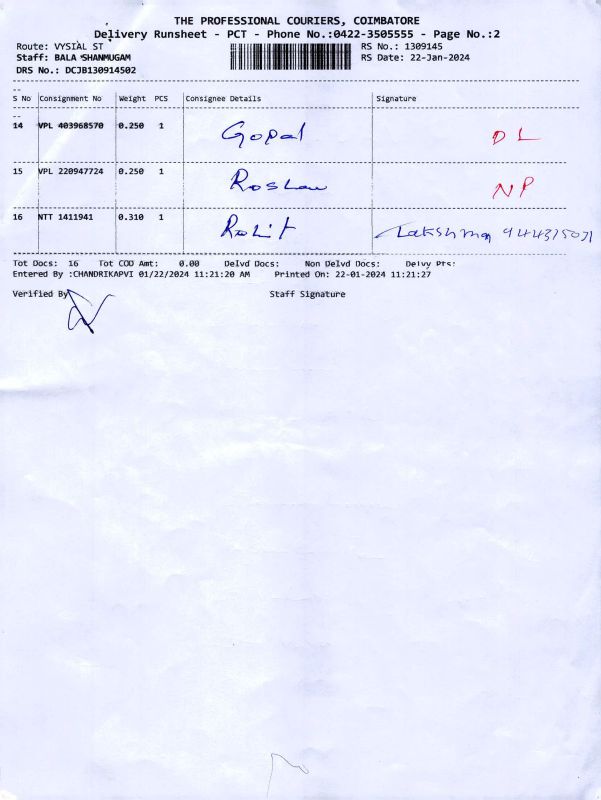 THE PROFESSIONAL COURIERS, COIMBATORE
Delivery Runsheet - PCT - Phone No.:0422-3505555 - Page No.:2
Route: VYSIAL ST RS No.: 1309145
Staff: BALA SHANMUGAM RS Date: 22-Jan-2024
DRS No.: DCJB130914502
S No Consignment No Weight PCS Consignee Details Signature
14 VPL 403968570 0.250 1 Gopal DL
15 VPL 220947724 0.250 1 Roshan NP
16 NTT 1411941 0.310 1 Rohit Lakshman
Tot Docs: 16 Tot COD Amt: 0.00 Delvd Docs: Non Delvd Docs: Delvy Pts:
Entered By :CHANDRIKAPVI 01/22/2024 11:21:20 AM Printed On: 22-01-2024 11:21:27
Verified By Staff Signature